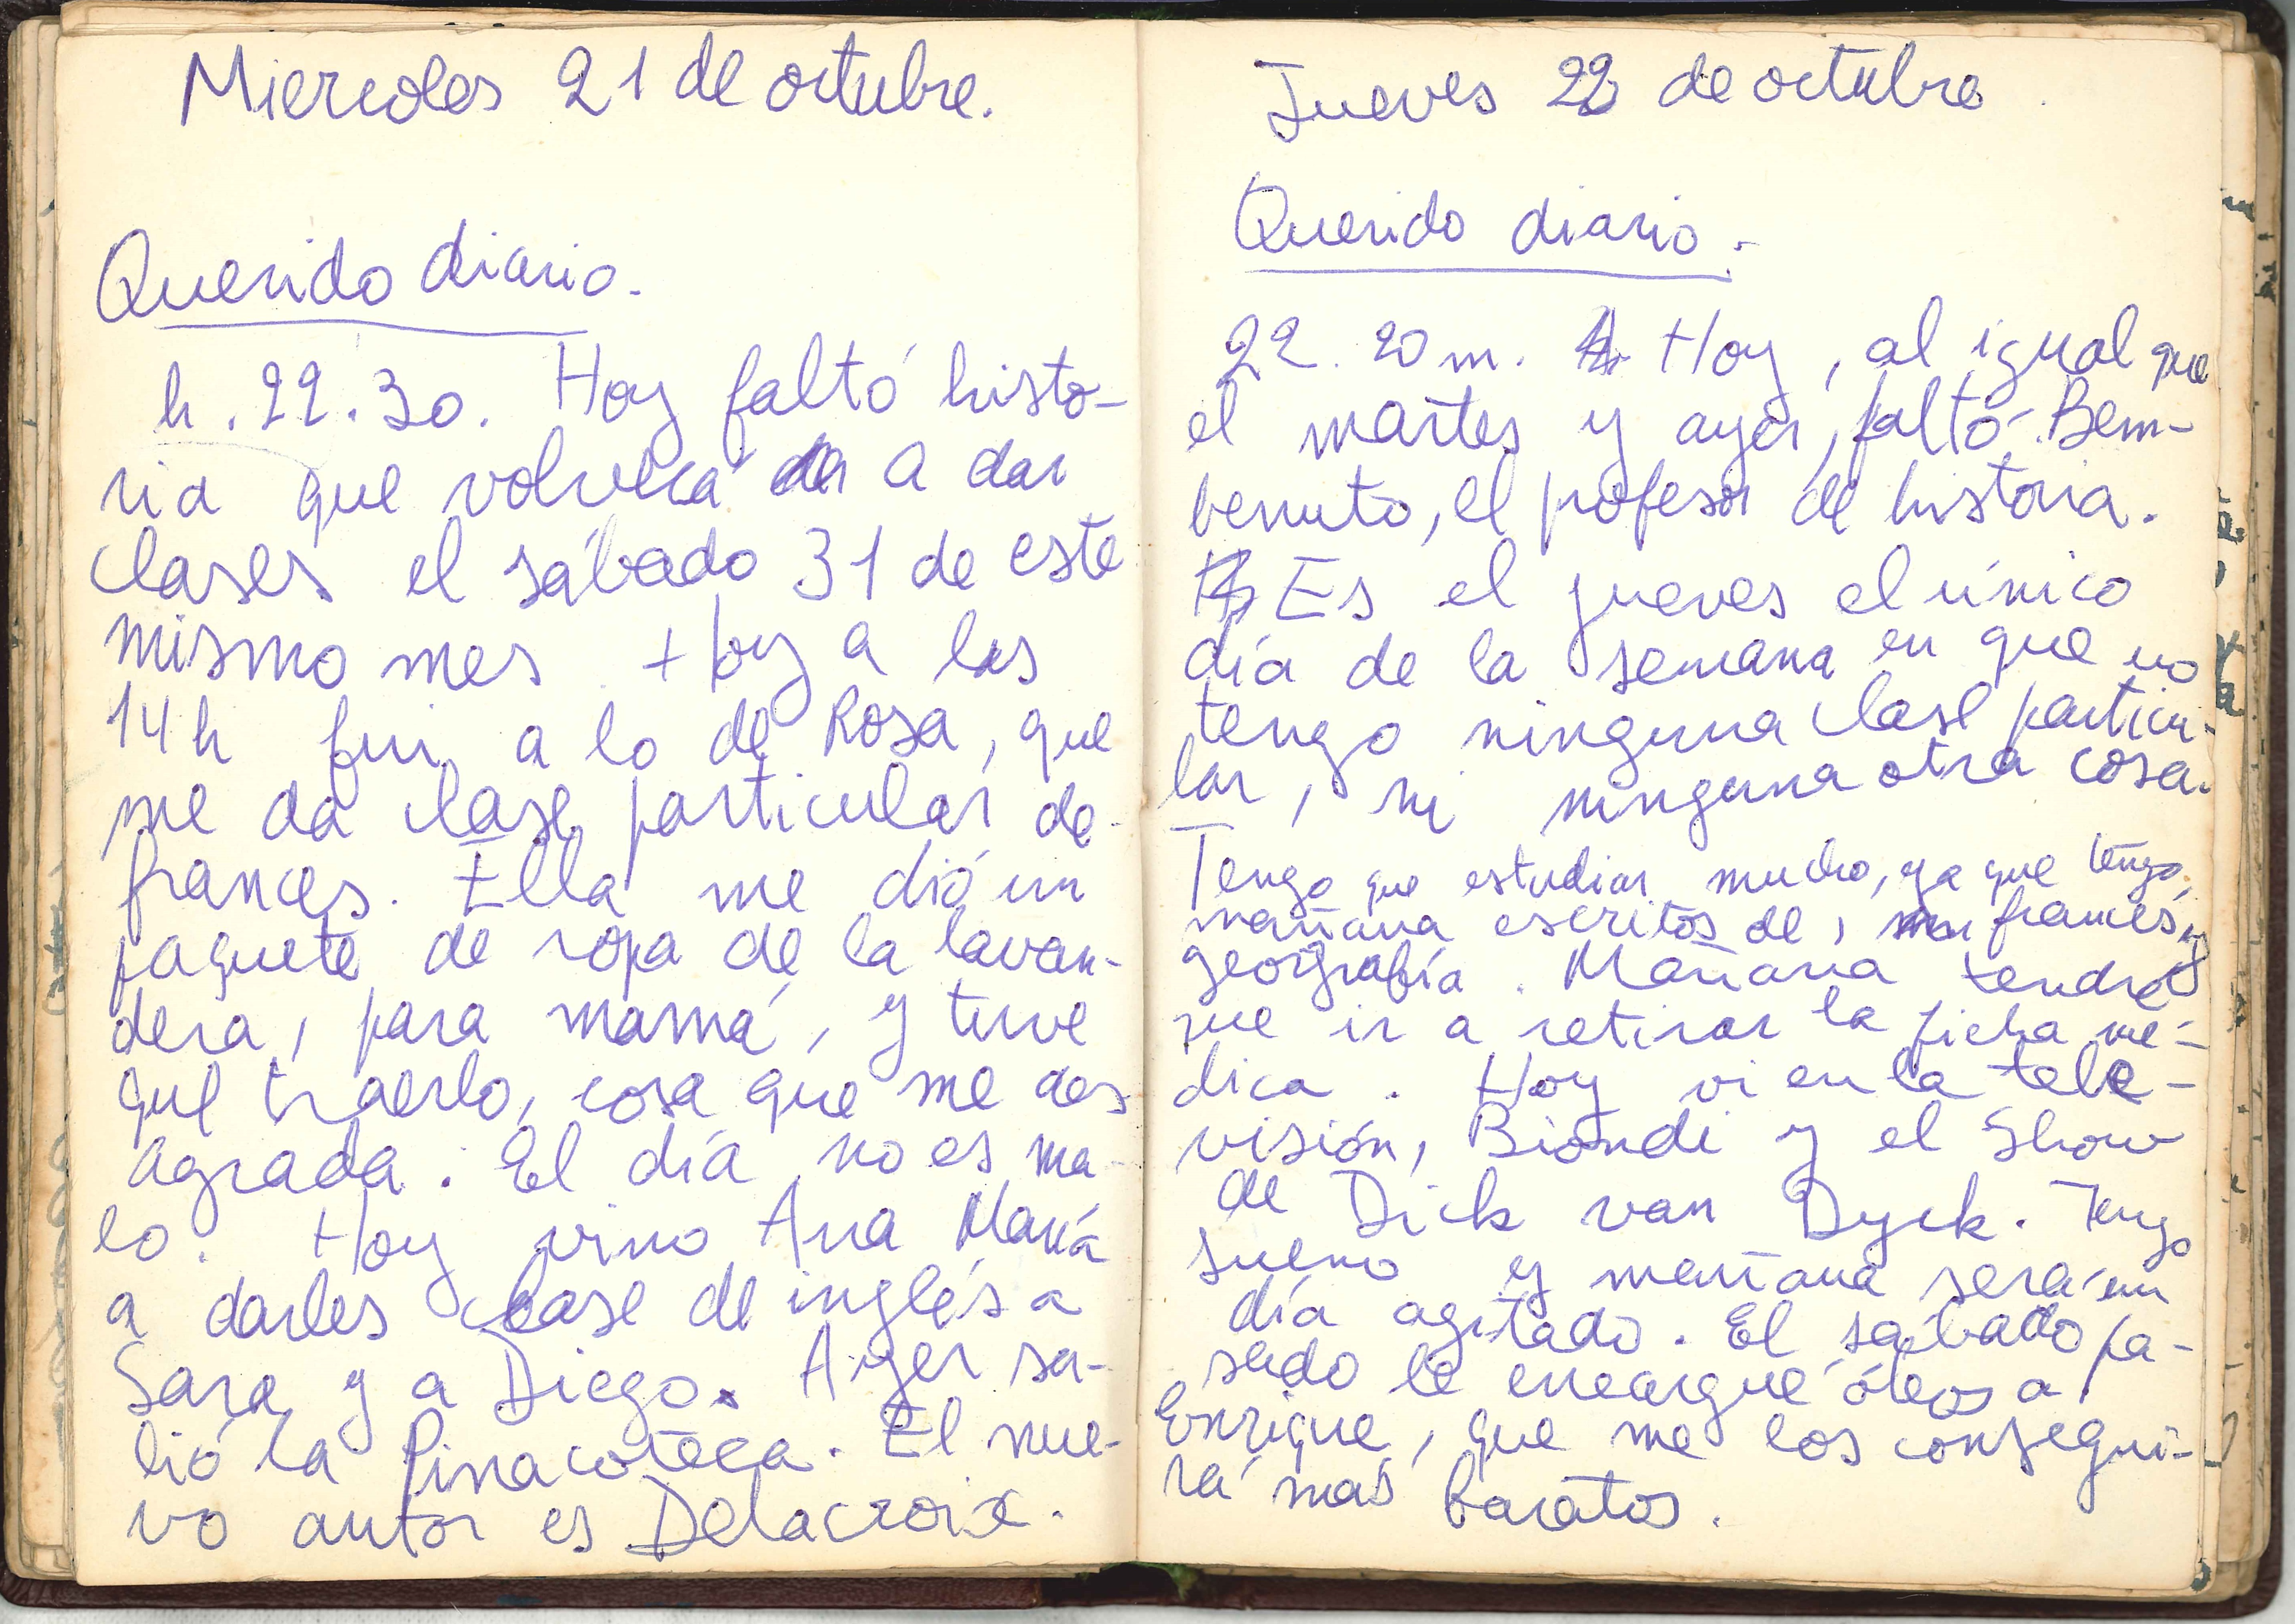 Miercoles 21 de octubre.
Querido diario.
h. 22.30. Hoy faltó histo-
ria que volverá a dar
clases el sábado 31 de este
mismo mes. Hoy a las
14h fui a lo de Rosa, que
me da clase particular de
frances. Ella me dió un
paquete de ropa de la lavan-
dera, para mamá, y tuve
que traerlo, cosa que me des
agrada. El día no es ma-
lo. Hoy vino Ana María
a darles clase de inglés a
Sara y a Diego. Ayer sa-
lió la Pinacoteca. El nue-
vo autor es Delacroix.
Jueves 22 de octubre
Querido diario.-
22. 20 m. Hoy, al igual que
el martes y ayer, faltó Bem-
benuto, el profesor de historia.
Es el jueves el único
día de la semana en que no
tengo ninguna clase particu-
lar, ni ninguna otra cosa.
Tengo que estudiar mucho, ya que tengo,
mañana escritos de, francés, y
geografía. Mañana tendré
que ir a retirar la ficha mé-
dica. Hoy vi en la tele-
visión, Biondi y el Show
de Dick van Dyck. Tengo
sueno y mañana será un
día agitado. El sábado pa-
sado le encargué óleos a
Enrique, que me los consegui-
rá más baratos.